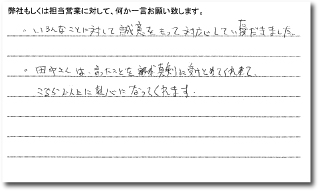 弊社もしくは担当営業に対して、何か一言お願い致します。
・いろんなことに対して誠意をもって対応していただきました。
・田中さんは、言ったことを 真剣に受けとめてくれて、
こちら以上に熱心になってくれます。